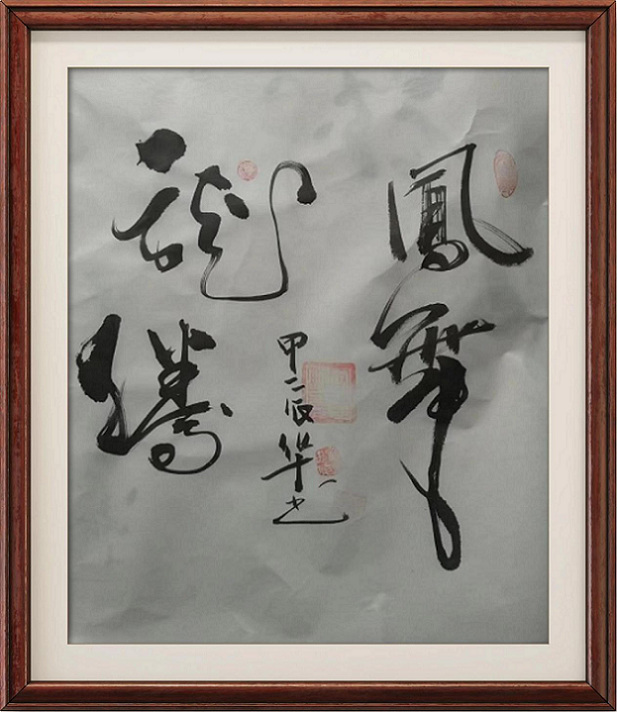 鳳舞
龍騰
甲辰华书